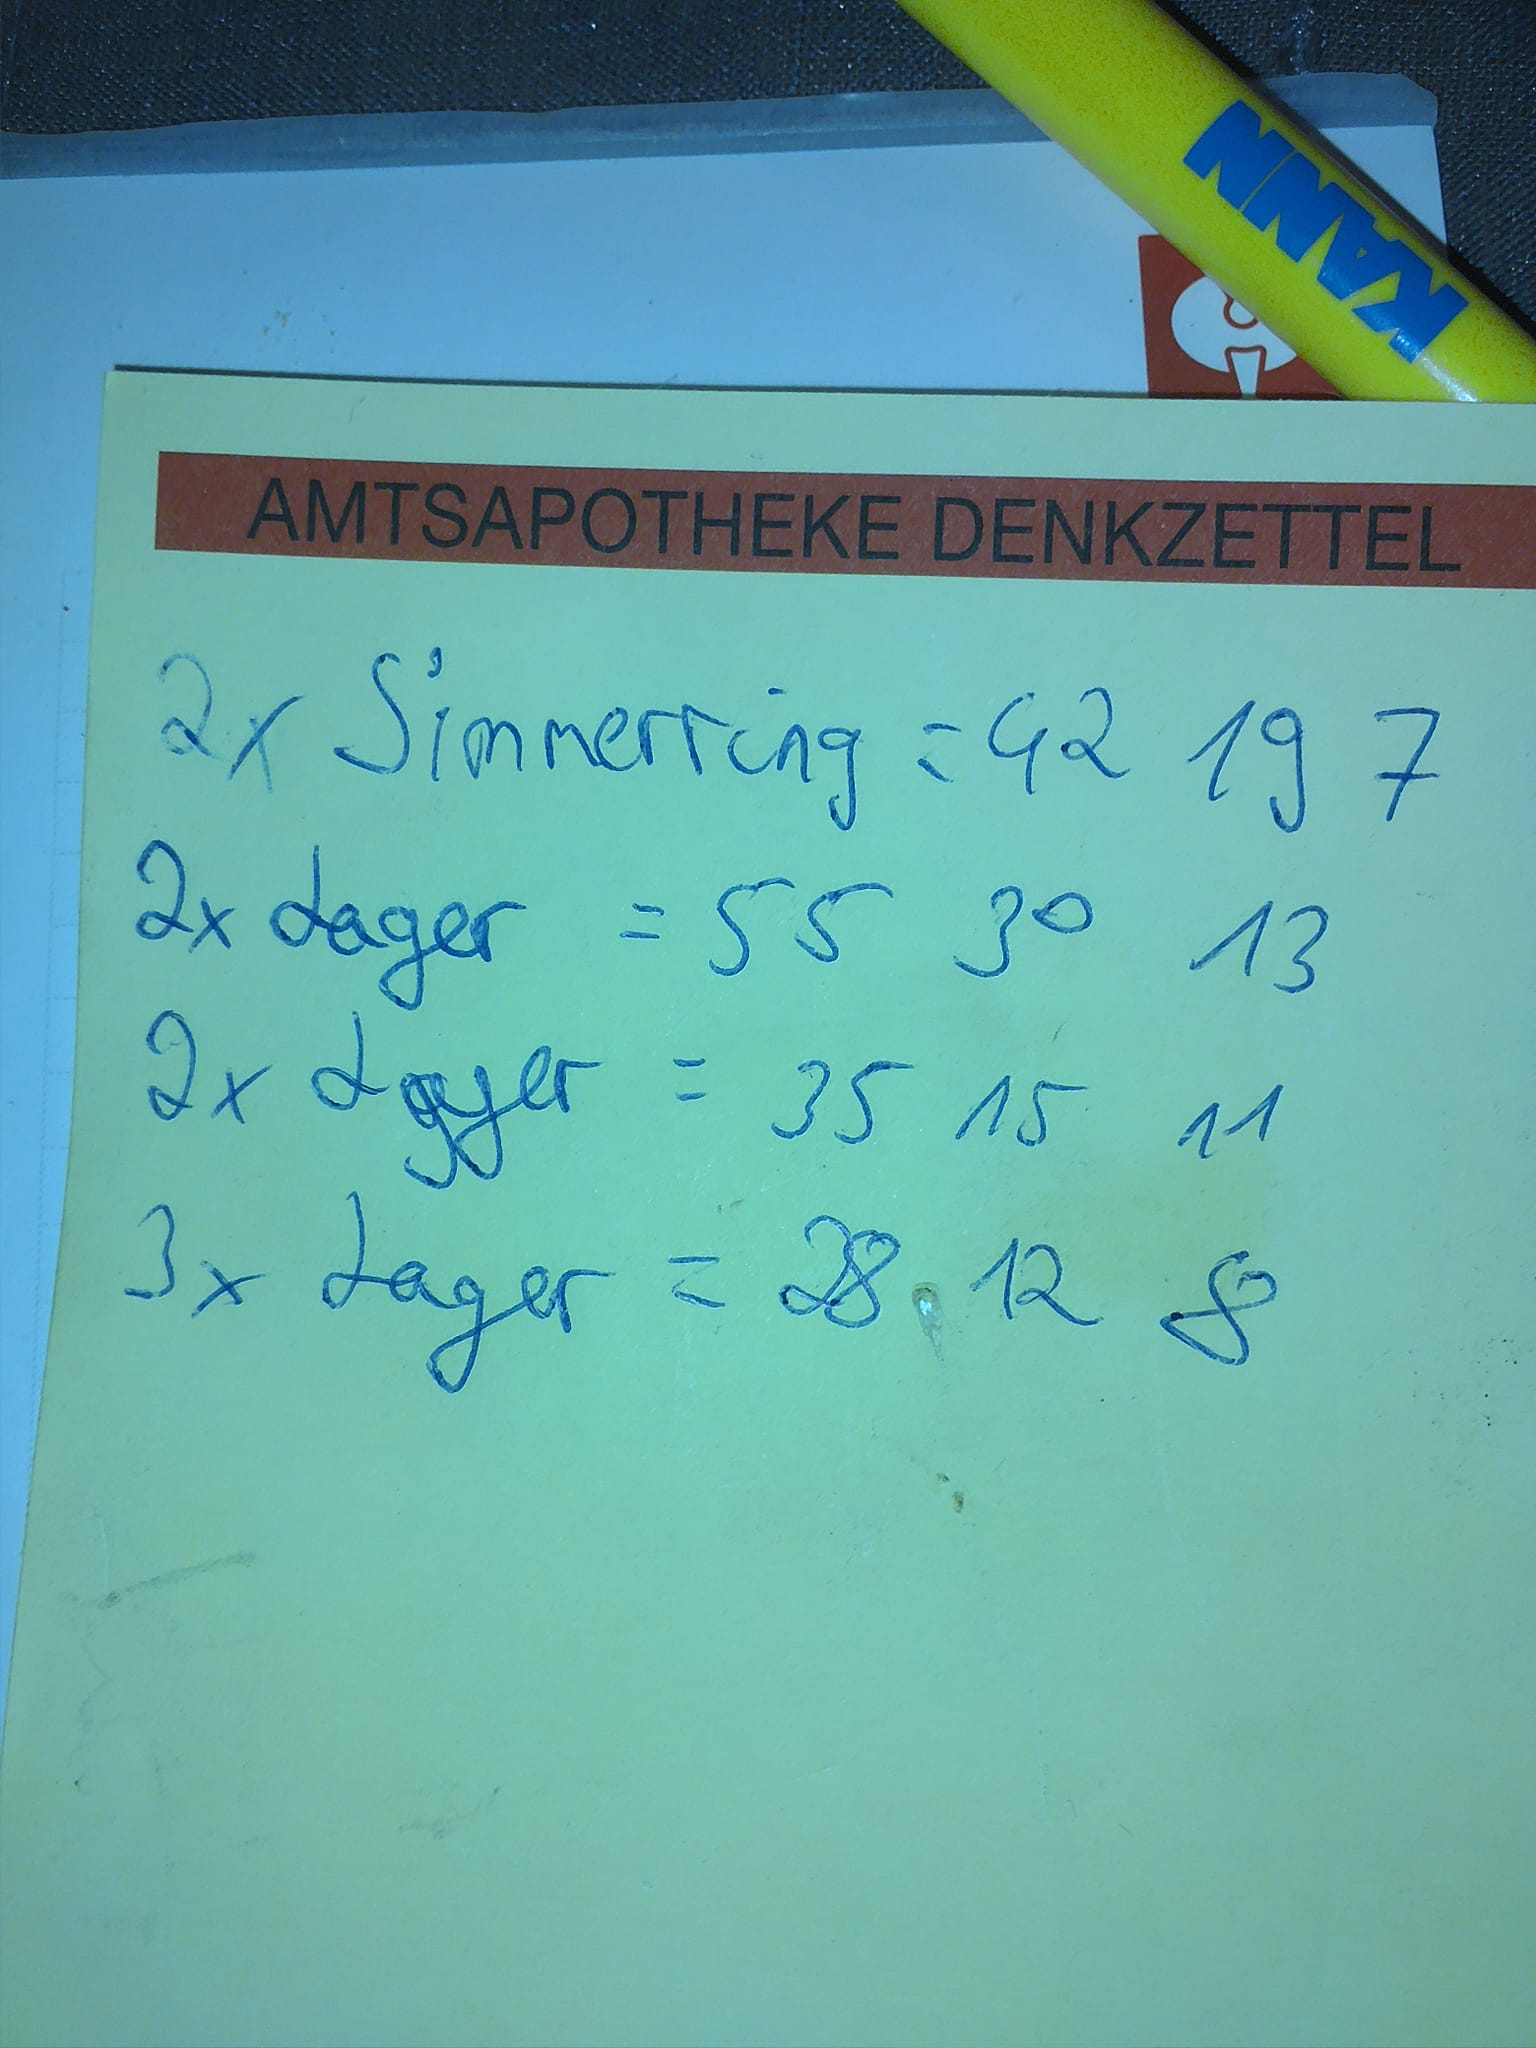 KANN
AMTSAPOTHEKE DENKZETTEL
2x Simmerring = 42 19 7
2x Lager = 55 30 13
2x Lager = 35 15 11
3x Lager = 28 12 8